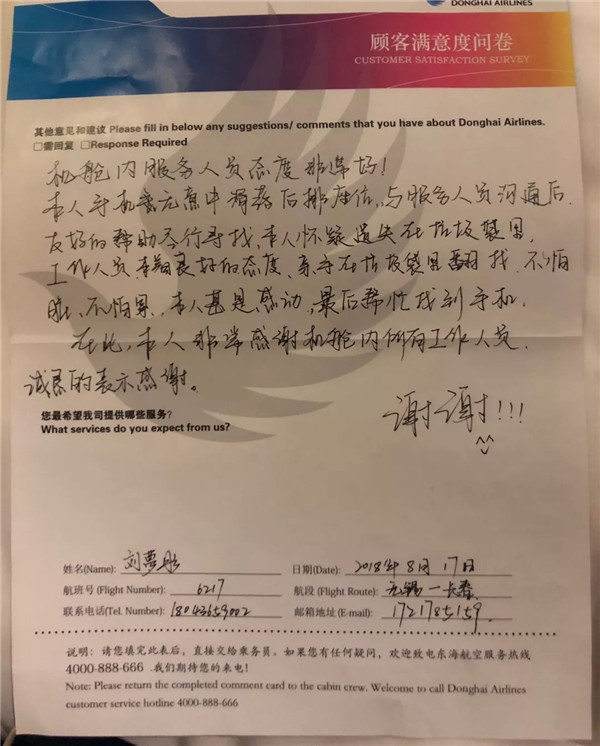 DONGHAI AIRLINES
顾客满意度问卷
CUSTOMER SATISFACTION SURVEY
其他意见和建议 Please fill in below any suggestions/ comments that you have about Donghai Airlines.
□需回复 □Response Required
机舱内服务人员态度非常好！
本人手机意无意中滑落后排座位,与服务人员沟通后.
友好的帮助进行寻找,本人怀疑遗失在垃圾袋里,
工作人员良好的态度、亲手在垃圾袋里翻找.不怕
脏、不怕累.本人甚是感动,最后帮忙找到手机.
在此,本人非常感谢机舱内所有工作人员.
诚恳的表示感谢。
您最希望我司提供哪些服务?
What services do you expect from us?
谢谢!!!
姓名(Name): 刘梦彤 日期(Date): 2018年8月17日
航班号(Flight Number): 6217 航段(Flight Route): 无锡—长春
联系电话(Tel. Number): 18043659002 邮箱地址(E-mail): 1721785159.
说明：请您填完此表后，直接交给乘务员。如果您有任何疑问，欢迎致电东海航空服务热线
4000-888-666 .我们期待您的来电!
Note: Please return the completed comment card to the cabin crew. Welcome to call Donghai Airlines
customer service hotline 4000-888-666